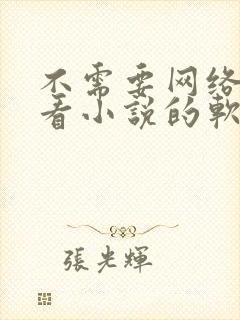 不需要网络
看小说的軟
張光輝